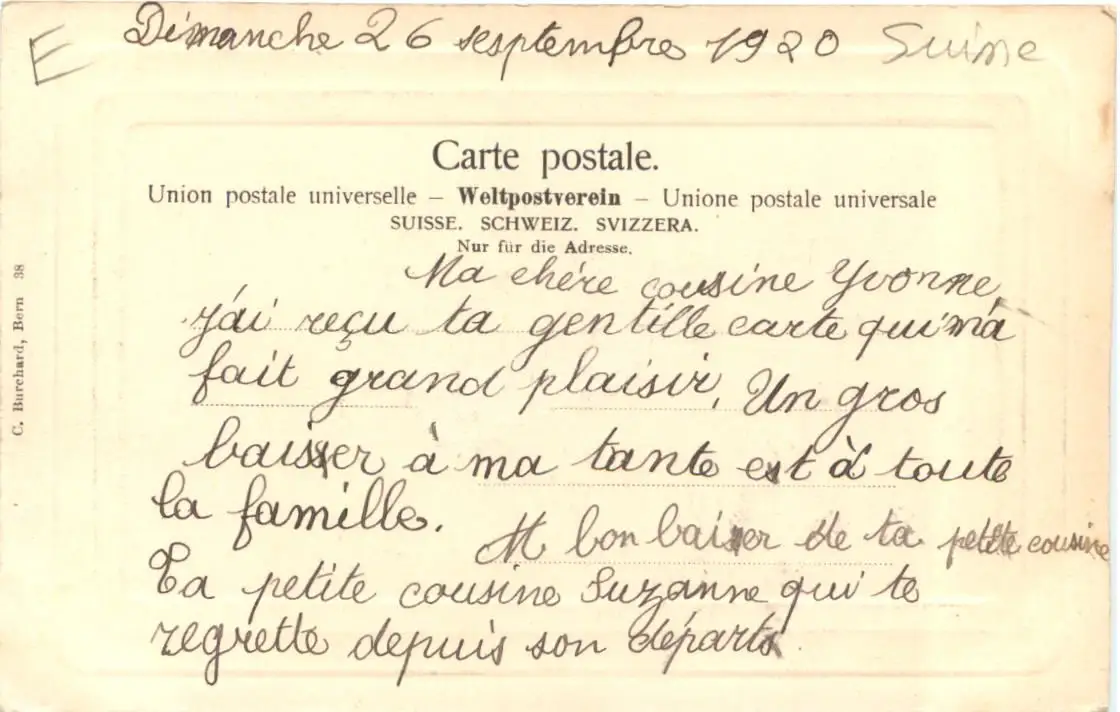 E
Dimanche 26 sesptembre 1920 Suisse
Carte postale.
Union postale universelle – Weltpostverein – Unione postale universale
SUISSE. SCHWEIZ. SVIZZERA.
Nur für die Adresse.
C. Burchard, Bern 38
Ma chére cousine Yvonne,
j'ai reçu ta gentille carte qui m'a
fait grand plaisir. Un gros
baisser à ma tante est à toute
la famille.
bon baiser de ta petite cousine
Ta petite cousine Suzanne qui te
regrette depuis son départ